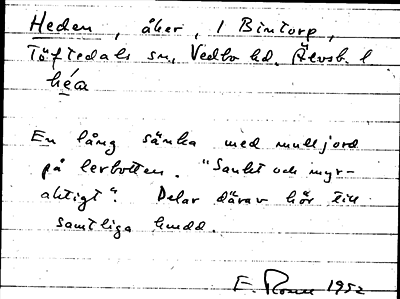 Heden, åker, 1 Bintorp,
Töftedals sn, Vedbo hd, Älvsb. l
héa
En lång sänka med mulljord
på lerbotten. "Sankt och myr-
aktigt". Delar därav hör till
samtliga hmdd.
E. 1952